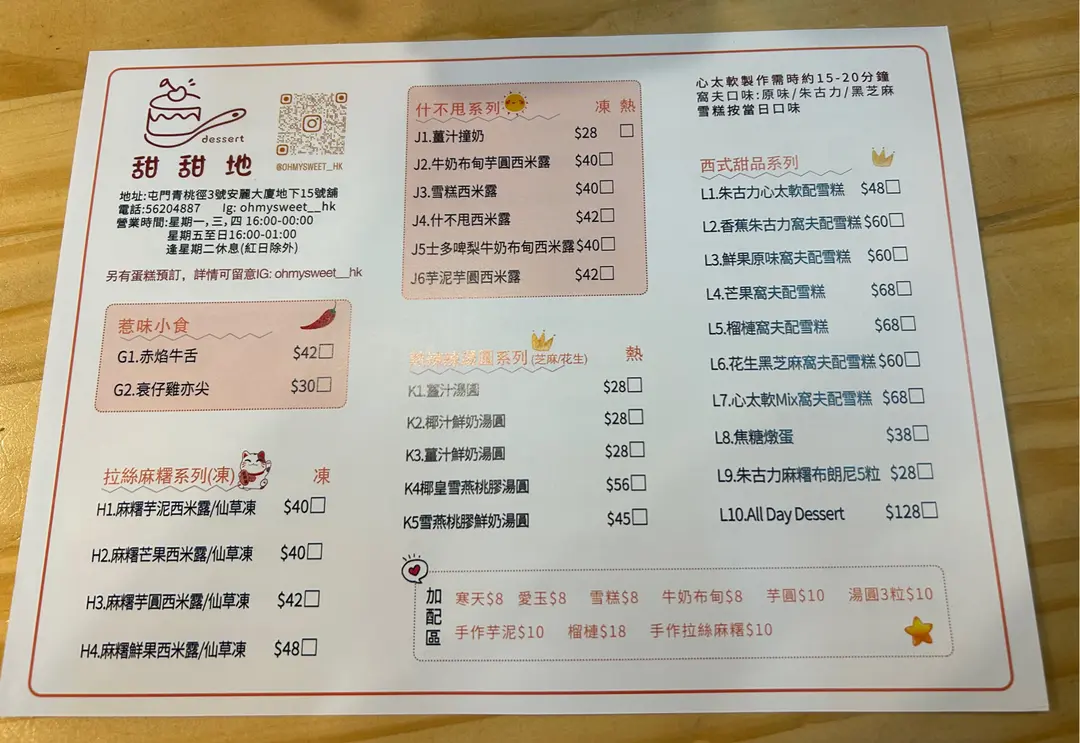 dessert
甜甜地
@OHMYSWEET__HK
地址:屯門青桃徑3號安麗大廈地下15號舖
電話:56204887 Ig: ohmysweet__hk
營業時間:星期一,三,四 16:00-00:00
星期五至日16:00-01:00
逢星期二休息(紅日除外)
另有蛋糕預訂，詳情可留意IG: ohmysweet__hk
惹味小食
G1.赤焰牛舌 $42
G2.衰仔雞亦尖 $30
拉絲麻糬系列(凍) 凍
H1.麻糬芋泥西米露/仙草凍 $40
H2.麻糬芒果西米露/仙草凍 $40
H3.麻糬芋圓西米露/仙草凍 $42
H4.麻糬鮮果西米露/仙草凍 $48
什不甩系列 凍 熱
J1.薑汁撞奶 $28
J2.牛奶布甸芋圓西米露 $40
J3.雪糕西米露 $40
J4.什不甩西米露 $42
J5士多啤梨牛奶布甸西米露$40
J6芋泥芋圓西米露 $42
圓系列(芝麻/花生) 熱
K1.薑汁湯圓 $28
K2.椰汁鮮奶湯圓 $28
K3.薑汁鮮奶湯圓 $28
K4椰皇雪燕桃膠湯圓 $56
K5雪燕桃膠鮮奶湯圓 $45
心太軟製作需時約15-20分鐘
窩夫口味:原味/朱古力/黑芝麻
雪糕按當日口味
西式甜品系列
L1.朱古力心太軟配雪糕 $48
L2.香蕉朱古力窩夫配雪糕 $60
L3.鮮果原味窩夫配雪糕 $60
L4.芒果窩夫配雪糕 $68
L5.榴槤窩夫配雪糕 $68
L6.花生黑芝麻窩夫配雪糕 $60
L7.心太軟Mix窩夫配雪糕 $68
L8.焦糖燉蛋 $38
L9.朱古力麻糬布朗尼5粒 $28
L10.All Day Dessert $128
加配區
寒天$8 愛玉$8 雪糕$8 牛奶布甸$8 芋圓$10 湯圓3粒$10
手作芋泥$10 榴槤$18 手作拉絲麻糬$10